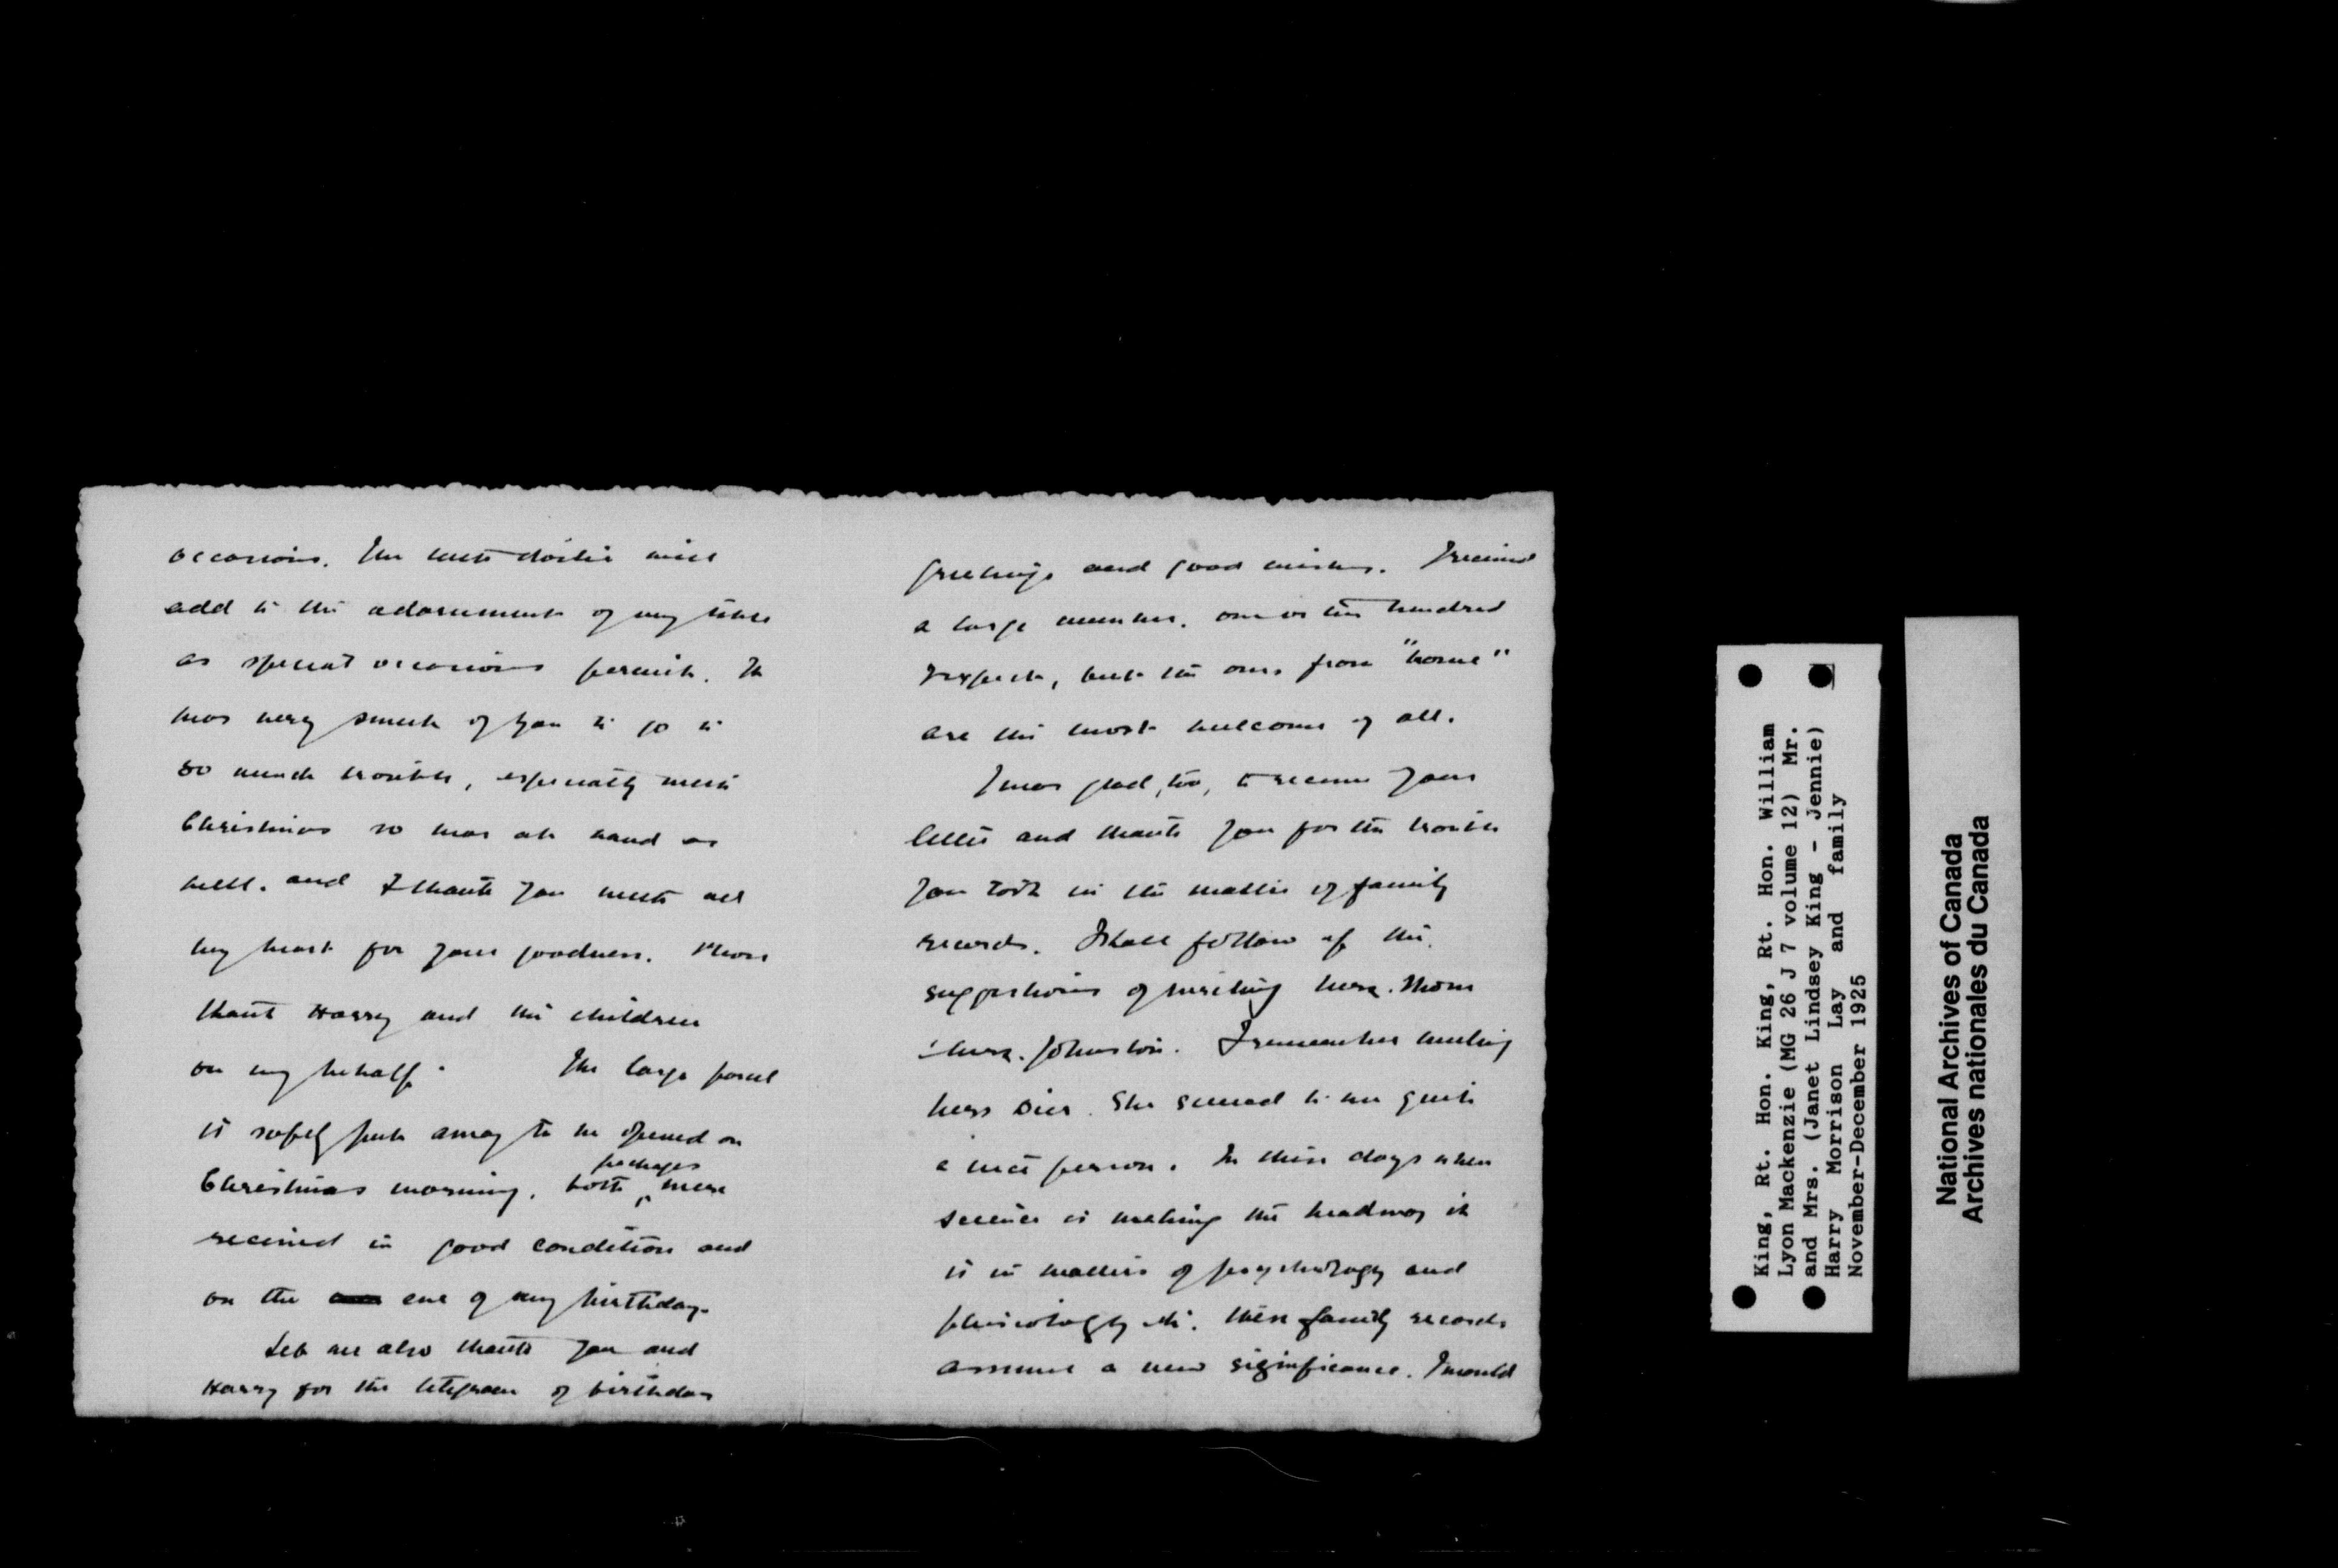 occasions. The little doilies will
add to the adornment of my table
as special occasions permit. It
was very sweet of you to go to
so much trouble, especially with
Christmas so near at hand as
well. and I thank you with all
my heart for your goodness. Please
thank Harry and the children
on my behalf. The large parcel
is safely put away to be opened on
Christmas morning. both packages were
received in good condition and
on the eve of my birthday.
Let me also thank you and
Harry for the telegram of birthday
greetings and good wishes. I received
a large number, one or two hundred
I expect, but the ones from "home"
are the most welcome of all.
I was glad, too, to receive your
letter and thank you for the trouble
you took in the matter of family
records. I shall follow up the
suggestions of writing Mrs. Thom
Mrs. Johnston. I remember meeting
Miss She seemed to me quite
a nice person. In these days when
science is making the headway it
is in matters of psychology and
phisiology etc. these family records
assume a new siginficance. I would
King, Rt. Hon. King, Rt. Hon. William
Lyon Mackenzie (MG 26 J 7 volume 12) Mr.
and Mrs. (Janet Lindsey King - Jennie)
Harry Morrison Lay and family
November-December 1925
National Archives of Canada
Archives nationales du Canada